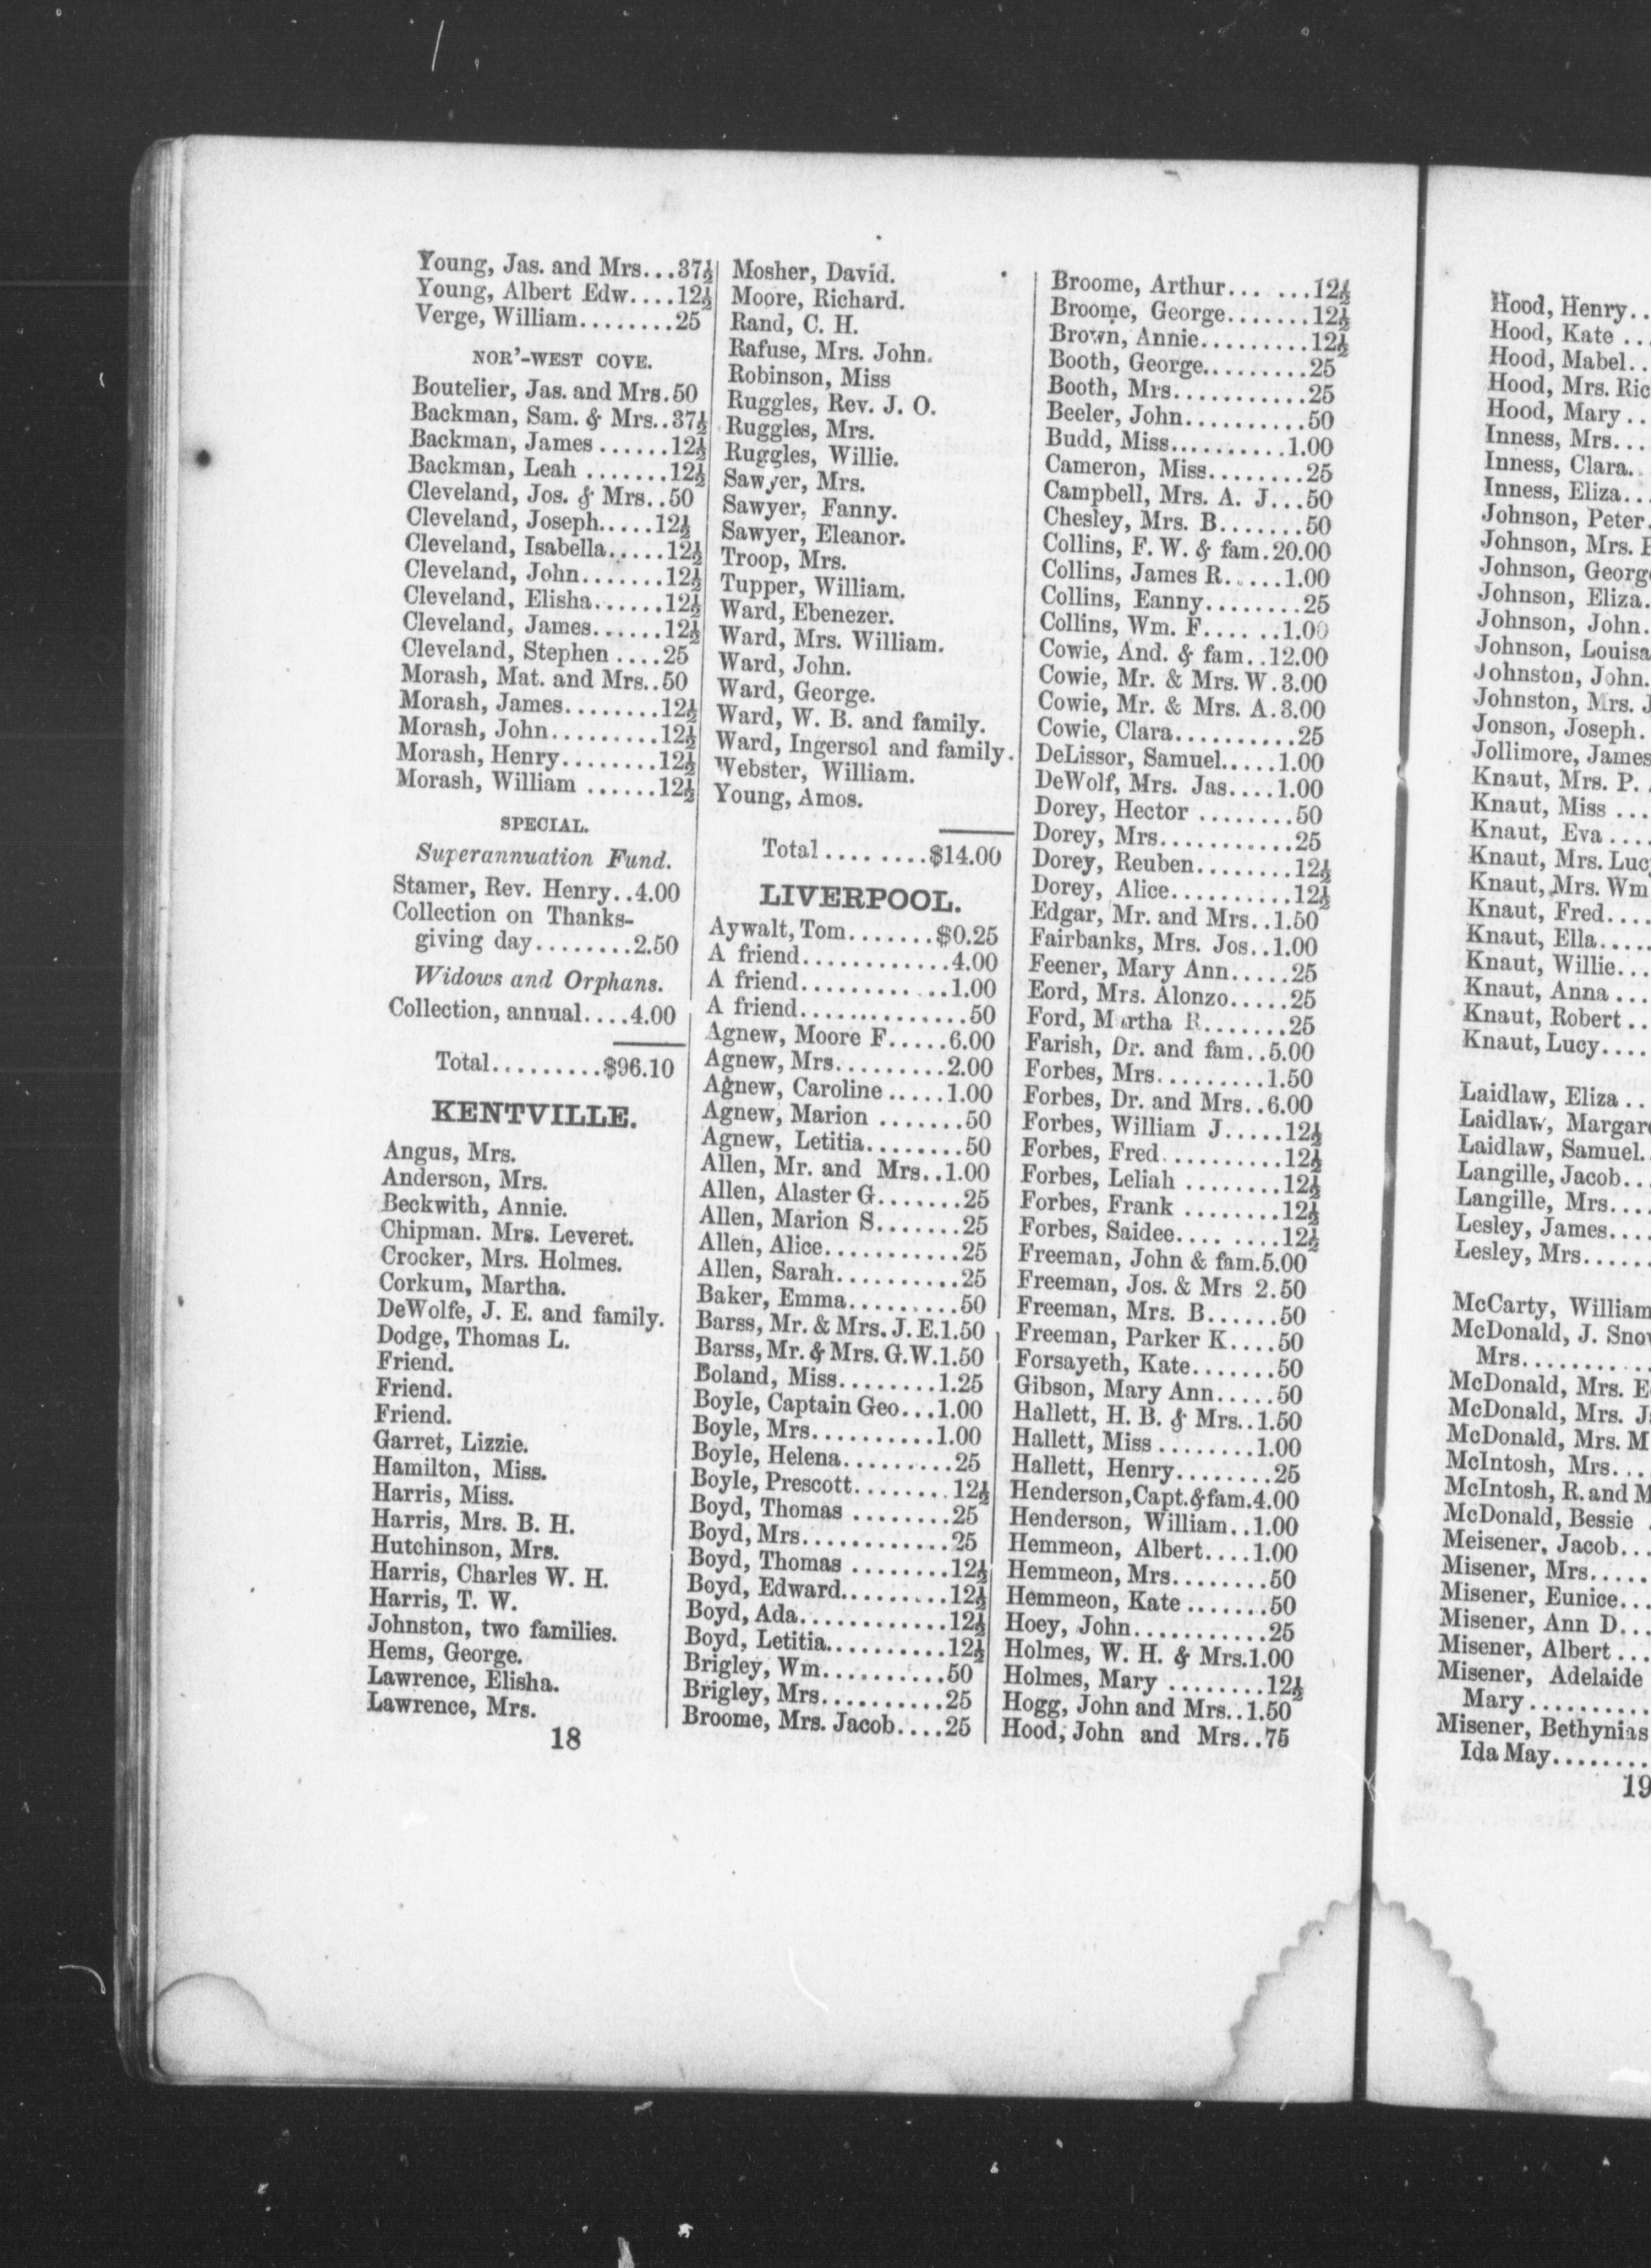 Young, Jas. and Mrs...37½
Young, Albert Edw....12½
Verge, William........25
NOR'-WEST COVE.
Boutelier, Jas. and Mrs.50
Backman, Sam. & Mrs..37½
Backman, James ......12½
Backman, Leah .......12½
Cleveland, Jos. & Mrs..50
Cleveland, Joseph.....12½
Cleveland, Isabella.....12½
Cleveland, John.......12½
Cleveland, Elisha......12½
Cleveland, James......12½
Cleveland, Stephen ....25
Morash, Mat. and Mrs..50
Morash, James........12½
Morash, John.........12½
Morash, Henry........12½
Morash, William ......12½
SPECIAL.
Superannuation Fund.
Stamer, Rev. Henry..4.00
Collection on Thanks-
giving day........2.50
Widows and Orphans.
Collection, annual....4.00
Total.........$96.10
KENTVILLE.
Angus, Mrs.
Anderson, Mrs.
Beckwith, Annie.
Chipman. Mrs. Leveret.
Crocker, Mrs. Holmes.
Corkum, Martha.
DeWolfe, J. E. and family.
Dodge, Thomas L.
Friend.
Friend.
Friend.
Garret, Lizzie.
Hamilton, Miss.
Harris, Miss.
Harris, Mrs. B. H.
Hutchinson, Mrs.
Harris, Charles W. H.
Harris, T. W.
Johnston, two families.
Hems, George.
Lawrence, Elisha.
Lawrence, Mrs.
Mosher, David.
Moore, Richard.
Rand, C. H.
Rafuse, Mrs. John.
Robinson, Miss
Ruggles, Rev. J. O.
Ruggles, Mrs.
Ruggles, Willie.
Sawyer, Mrs.
Sawyer, Fanny.
Sawyer, Eleanor.
Troop, Mrs.
Tupper, William.
Ward, Ebenezer.
Ward, Mrs. William.
Ward, John.
Ward, George.
Ward, W. B. and family.
Ward, Ingersol and family.
Webster, William.
Young, Amos.
Total.........$14.00
LIVERPOOL.
Aywalt, Tom.......$0.25
A friend............4.00
A friend............1.00
A friend..............50
Agnew, Moore F.....6.00
Agnew, Mrs.........2.00
Agnew, Caroline .....1.00
Agnew, Marion .......50
Agnew, Letitia........50
Allen, Mr. and Mrs..1.00
Allen, Alaster G.......25
Allen, Marion S.......25
Allen, Alice............25
Allen, Sarah..........25
Baker, Emma.........50
Barss, Mr. & Mrs. J. E.1.50
Barss, Mr. & Mrs. G.W.1.50
Boland, Miss........1.25
Boyle, Captain Geo...1.00
Boyle, Mrs..........1.00
Boyle, Helena.........25
Boyle, Prescott........12½
Boyd, Thomas ........25
Boyd, Mrs............25
Boyd, Thomas ........12½
Boyd, Edward.........12½
Boyd, Ada............12½
Boyd, Letitia..........12½
Brigley, Wm..........50
Brigley, Mrs..........25
Broome, Mrs. Jacob....25
Broome, Arthur... ...12½
Broome, George.......12½
Brown, Annie.........12½
Booth, George.........25
Booth, Mrs...........25
Beeler, John..........50
Budd, Miss..........1.00
Cameron, Miss........25
Campbell, Mrs. A. J...50
Chesley, Mrs. B.......50
Collins, F. W. & fam.20.00
Collins, James R.....1.00
Collins, Eanny........25
Collins, Wm. F.... ..1.00
Cowie, And. & fam..12.00
Cowie, Mr. & Mrs. W.3.00
Cowie, Mr. & Mrs. A.3.00
Cowie, Clara..........25
DeLissor, Samuel.....1.00
DeWolf, Mrs. Jas....1.00
Dorey, Hector ........50
Dorey, Mrs............25
Dorey, Reuben........12½
Dorey, Alice..........12½
Edgar, Mr. and Mrs..1.50
Fairbanks, Mrs. Jos..1.00
Feener, Mary Ann.....25
Eord, Mrs. Alonzo.....25
Ford, Martha R.......25
Farish, Dr. and fam..5.00
Forbes, Mrs.........1.50
Forbes, Dr. and Mrs..6.00
Forbes, William J.....12½
Forbes, Fred..........12½
Forbes, Leliah ........12½
Forbes, Frank ........12½
Forbes, Saidee.... ....12½
Freeman, John & fam.5.00
Freeman, Jos. & Mrs 2.50
Freeman, Mrs. B......50
Freeman, Parker K....50
Forsayeth, Kate.......50
Gibson, Mary Ann.....50
Hallett, H. B. & Mrs..1.50
Hallett, Miss ........1.00
Hallett, Henry........25
Henderson,Capt.&fam.4.00
Henderson, William..1.00
Hemmeon, Albert....1.00
Hemmeon, Mrs........50
Hemmeon, Kate .......50
Hoey, John...........25
Holmes, W. H. & Mrs.1.00
Holmes, Mary ........12½
Hogg, John and Mrs..1.50
Hood, John and Mrs..75
18
Hood, Henry..
Hood, Kate ...
Hood, Mabel..
Hood, Mrs. Ric
Hood, Mary ..
Inness, Mrs...
Inness, Clara..
Inness, Eliza..
Johnson, Peter.
Johnson, Mrs.
Johnson, Georg
Johnson, Eliza.
Johnson, John.
Johnson, Louisa
Johnston, John.
Johnston, Mrs. J
Jonson, Joseph.
Jollimore, James
Knaut, Mrs. P. .
Knaut, Miss ...
Knaut, Eva ....
Knaut, Mrs. Luc
Knaut, Mrs. Wm
Knaut, Fred....
Knaut, Ella.....
Knaut, Willie...
Knaut, Anna ...
Knaut, Robert ..
Knaut, Lucy....
Laidlaw, Eliza ..
Laidlaw, Margar
Laidlaw, Samuel.
Langille, Jacob...
Langille, Mrs....
Lesley, James....
Lesley, Mrs......
McCarty, William
McDonald, J. Sno
Mrs..........
McDonald, Mrs. E
McDonald, Mrs. J
McDonald, Mrs. M
McIntosh, Mrs....
McIntosh, R. and M
McDonald, Bessie .
Meisener, Jacob...
Misener, Mrs.....
Misener, Eunice...
Misener, Ann D...
Misener, Albert ...
Misener, Adelaide
Mary ..........
Misener, Bethynias
Ida May.........
19